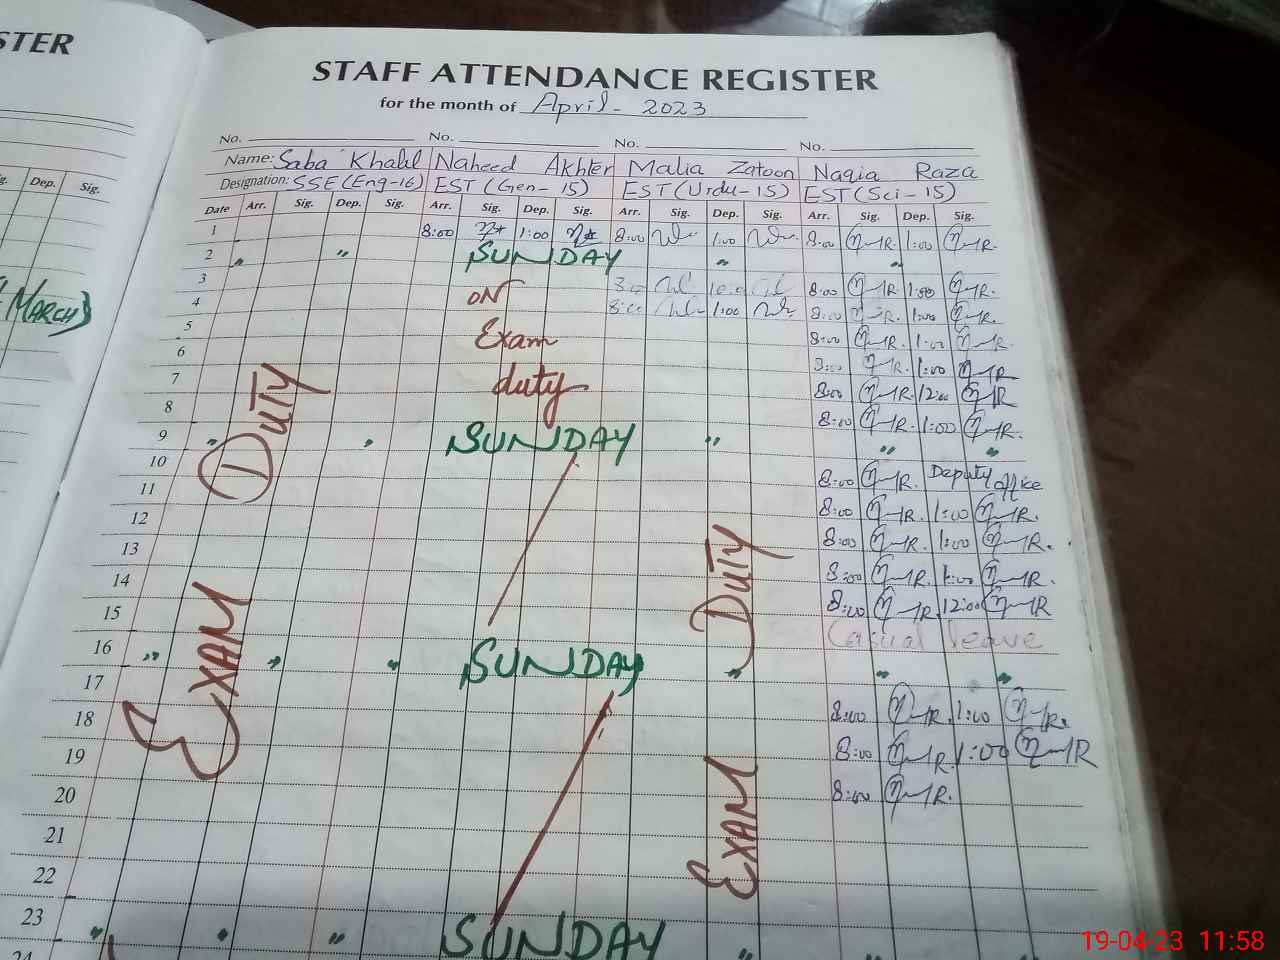 STER
STAFF ATTENDANCE REGISTER
for the month of April - 2023
No. No. No. No.
Name: Saba Khalil Naheed Akhter Malia Zatoon Naqia Raza
Designation: SSE (Eng-16) EST (Gen-15) EST (Urdu-15) EST (Sci-15)
Dep. Sig.
Date Arr. Sig. Dep. Sig. Arr. Sig. Dep. Sig. Arr. Sig. Dep. Sig. Arr. Sig. Dep. Sig.
1 8:00 1:00 8:00 1:00 8:00 1:00
2 " " SUNDAY " "
3 8:00 1:00
(MARCH)
4 ON 8:00 1:00 8:00 1:00
5 Exam 8:00 1:00
6 1:00
7 duty 8:00 12:00
8 8:00 1:00
9 " " SUNDAY " " "
10 8:00 Deputy office
11 8:00 1:00
12 8:00 1:00
13 8:00 1:00
14 8:00 12:00
15 Casual leave
16 " " " SUNDAY " " "
17 8:00 1:00
18 8:00 1:00
19 8:00
20
21
22
23 " " " SUNDAY "
24
EXAM DUTY
EXAM DUTY
19-04-23 11:58